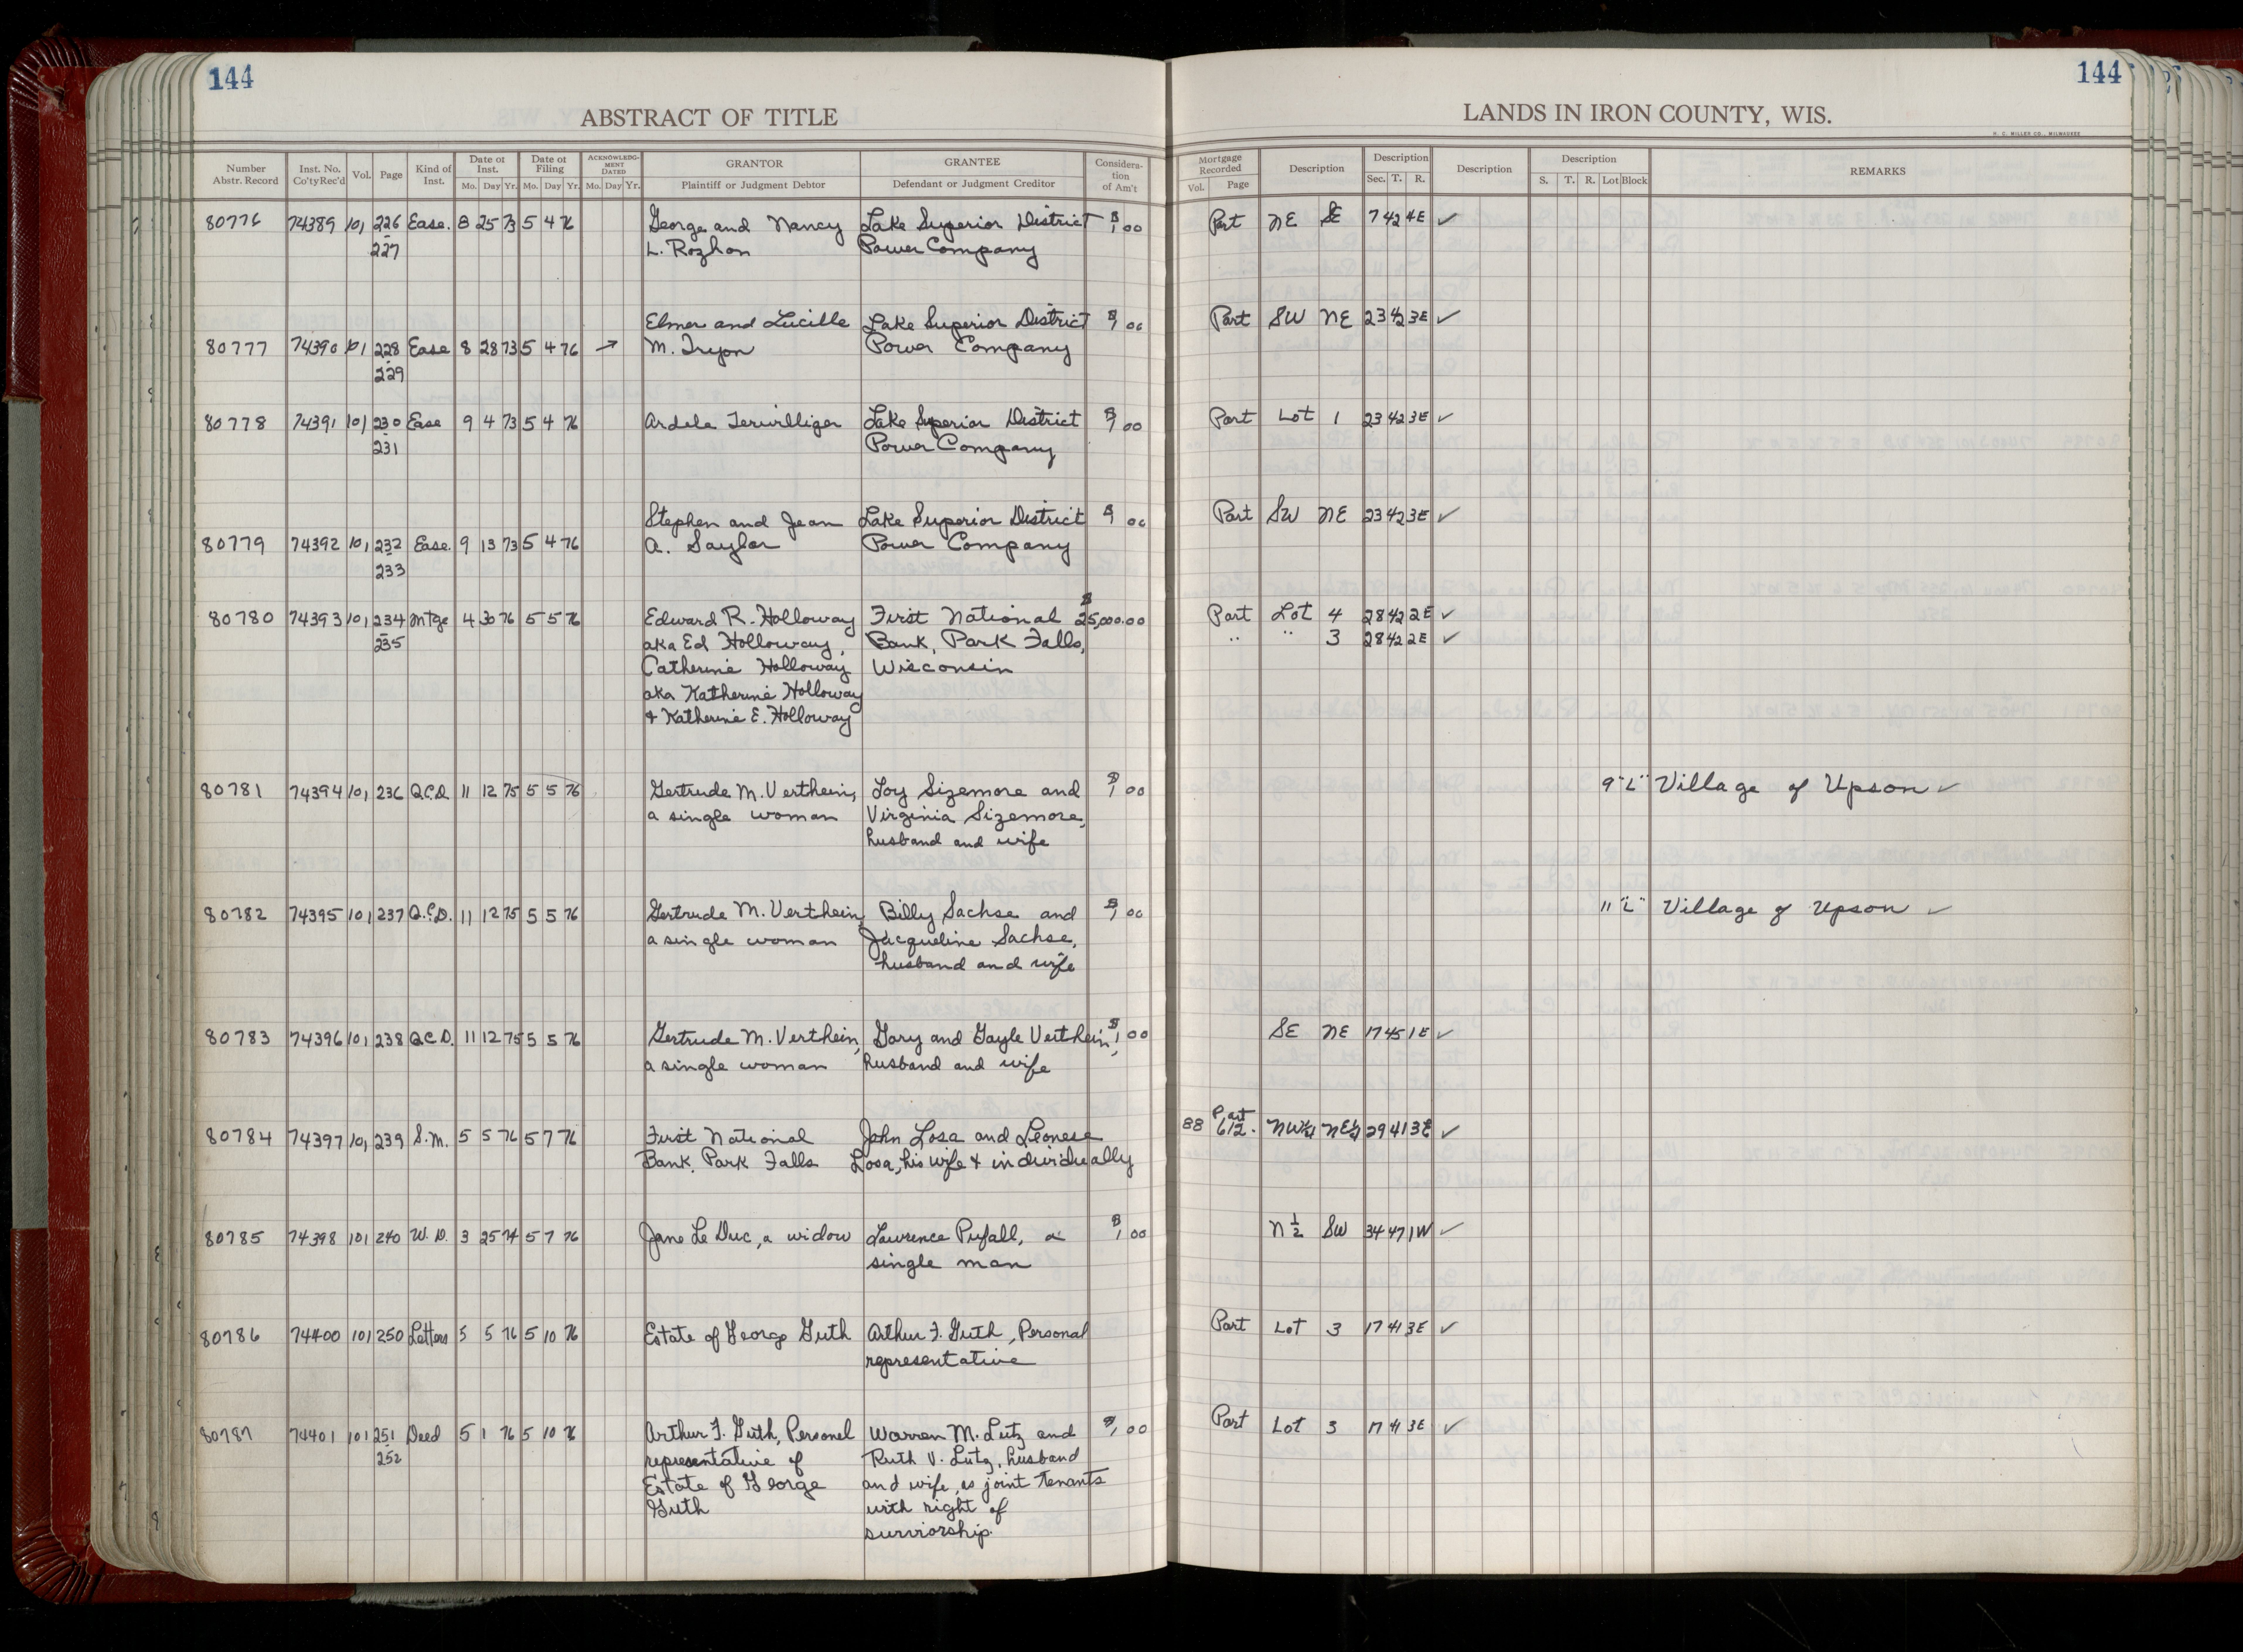 144
144
ABSTRACT OF TITLE
LANDS IN IRON COUNTY, WIS.
H. C. MILLER CO., MILWAUKEE
Number Abstr. Record | Inst. No. Co'ty Rec'd | Vol. | Page | Kind of Inst. | Date of Inst. Mo. Day Yr. | Date of Filing Mo. Day Yr. | ACKNOWLEDGMENT DATED Mo. Day Yr. | GRANTOR Plaintiff or Judgment Debtor | GRANTEE Defendant or Judgment Creditor | Consideration of Am't | Mortgage Recorded Vol. Page | Description | Description Sec. T. R. | Description | Description S. T. R. Lot Block | REMARKS
80776 74389 101 226 Ease. 8 25 73 5 4 76 George and Nancy Lake Superior District $1 00 Part NE SE 7 42 4E ✓
227 L. Rozhon Power Company
Elmer and Lucille Lake Superior District $1 00 Part SW NE 23 42 3E ✓
80777 74390 101 228 Ease 8 28 73 5 4 76 → M. Tryon Power Company
229
80778 74391 101 230 Ease 9 4 73 5 4 76 Ardele Terwilliger Lake Superior District $1 00 Part Lot 1 23 42 3E ✓
231 Power Company
Stephen and Jean Lake Superior District $1 00 Part SW NE 23 42 3E ✓
80779 74392 101 232 Ease. 9 13 73 5 4 76 A. Saylor Power Company
233
80780 74393 101 234 Mtge 4 30 76 5 5 76 Edward R. Holloway First National $25,000.00 Part Lot 4 28 42 2E ✓
235 aka Ed Holloway, Bank, Park Falls, " " 3 28 42 2E ✓
Catherine Holloway Wisconsin
aka Katherine Holloway
& Katherine E. Holloway
80781 74394 101 236 Q.C.D. 11 12 75 5 5 76 Gertrude M. Verthein, Loy Sizemore and $1 00 9 "L" Village of Upson ✓
a single woman Virginia Sizemore,
husband and wife
80782 74395 101 237 Q.C.D. 11 12 75 5 5 76 Gertrude M. Verthein, Billy Sachse and $1 00 11 "L" Village of Upson ✓
a single woman Jacqueline Sachse,
husband and wife
80783 74396 101 238 Q.C.D. 11 12 75 5 5 76 Gertrude M. Verthein, Gary and Gayle Verthein, $1 00 SE NE 17 45 1E ✓
a single woman husband and wife
80784 74397 101 239 S.M. 5 5 76 5 7 76 First National John Losa and Leonese 88 Part 612. NW¼ NE¼ 29 41 3E ✓
Bank, Park Falls Losa, his wife & individually
80785 74398 101 240 W.D. 3 25 74 5 7 76 Jane Le Duc, a widow Lawrence Pufall, a $1 00 N ½ SW 34 47 1W ✓
single man
80786 74400 101 250 Letters 5 5 76 5 10 76 Estate of George Guth Arthur F. Guth, Personal Part Lot 3 17 41 3E ✓
representative
80787 74401 101 251 Deed 5 1 76 5 10 76 Arthur F. Guth, Personel Warren M. Lutz and $1 00 Part Lot 3 17 41 3E ✓
252 representative of Ruth V. Lutz, husband
Estate of George and wife, as joint tenants
Guth with right of
surviorship.